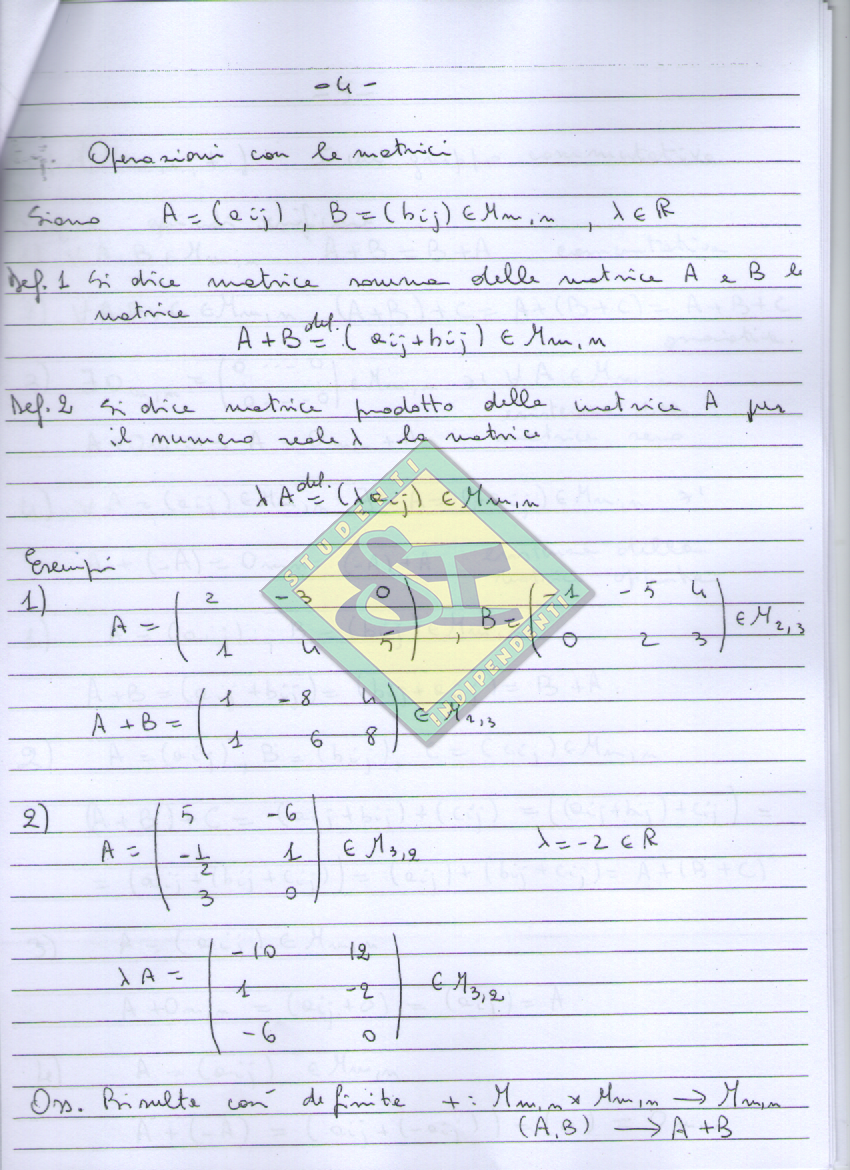 - 4 -
Operazioni con le matrici
Siano A = (aij) , B = (bij) ∈ Mm,n , λ ∈ R
Def. 1 Si dice matrice somma delle matrice A e B le
matrice
A + B def.= ( aij + bij ) ∈ Mm,n
Def. 2 Si dice matrice prodotto della matrice A per
il numero reale λ la matrice
λA def.= (λ aij) ∈ Mm,n
STUDENTI
SI
INDIPENDENTI
Esempi
1)
A = ( 2 -3 0 ) , B = ( -1 -5 4 ) ∈ M2,3
1 4 5 0 2 3
A + B = ( 1 -8 4 ) ∈ M2,3
1 6 8
2)
5 -6
A = ( -1/2 1 ) ∈ M3,2 λ = -2 ∈ R
3 0
-10 12
λA = ( 1 -2 ) ∈ M3,2
-6 0
Oss. Risulta così definite + : Mm,n × Mm,n → Mm,n
(A,B) → A + B